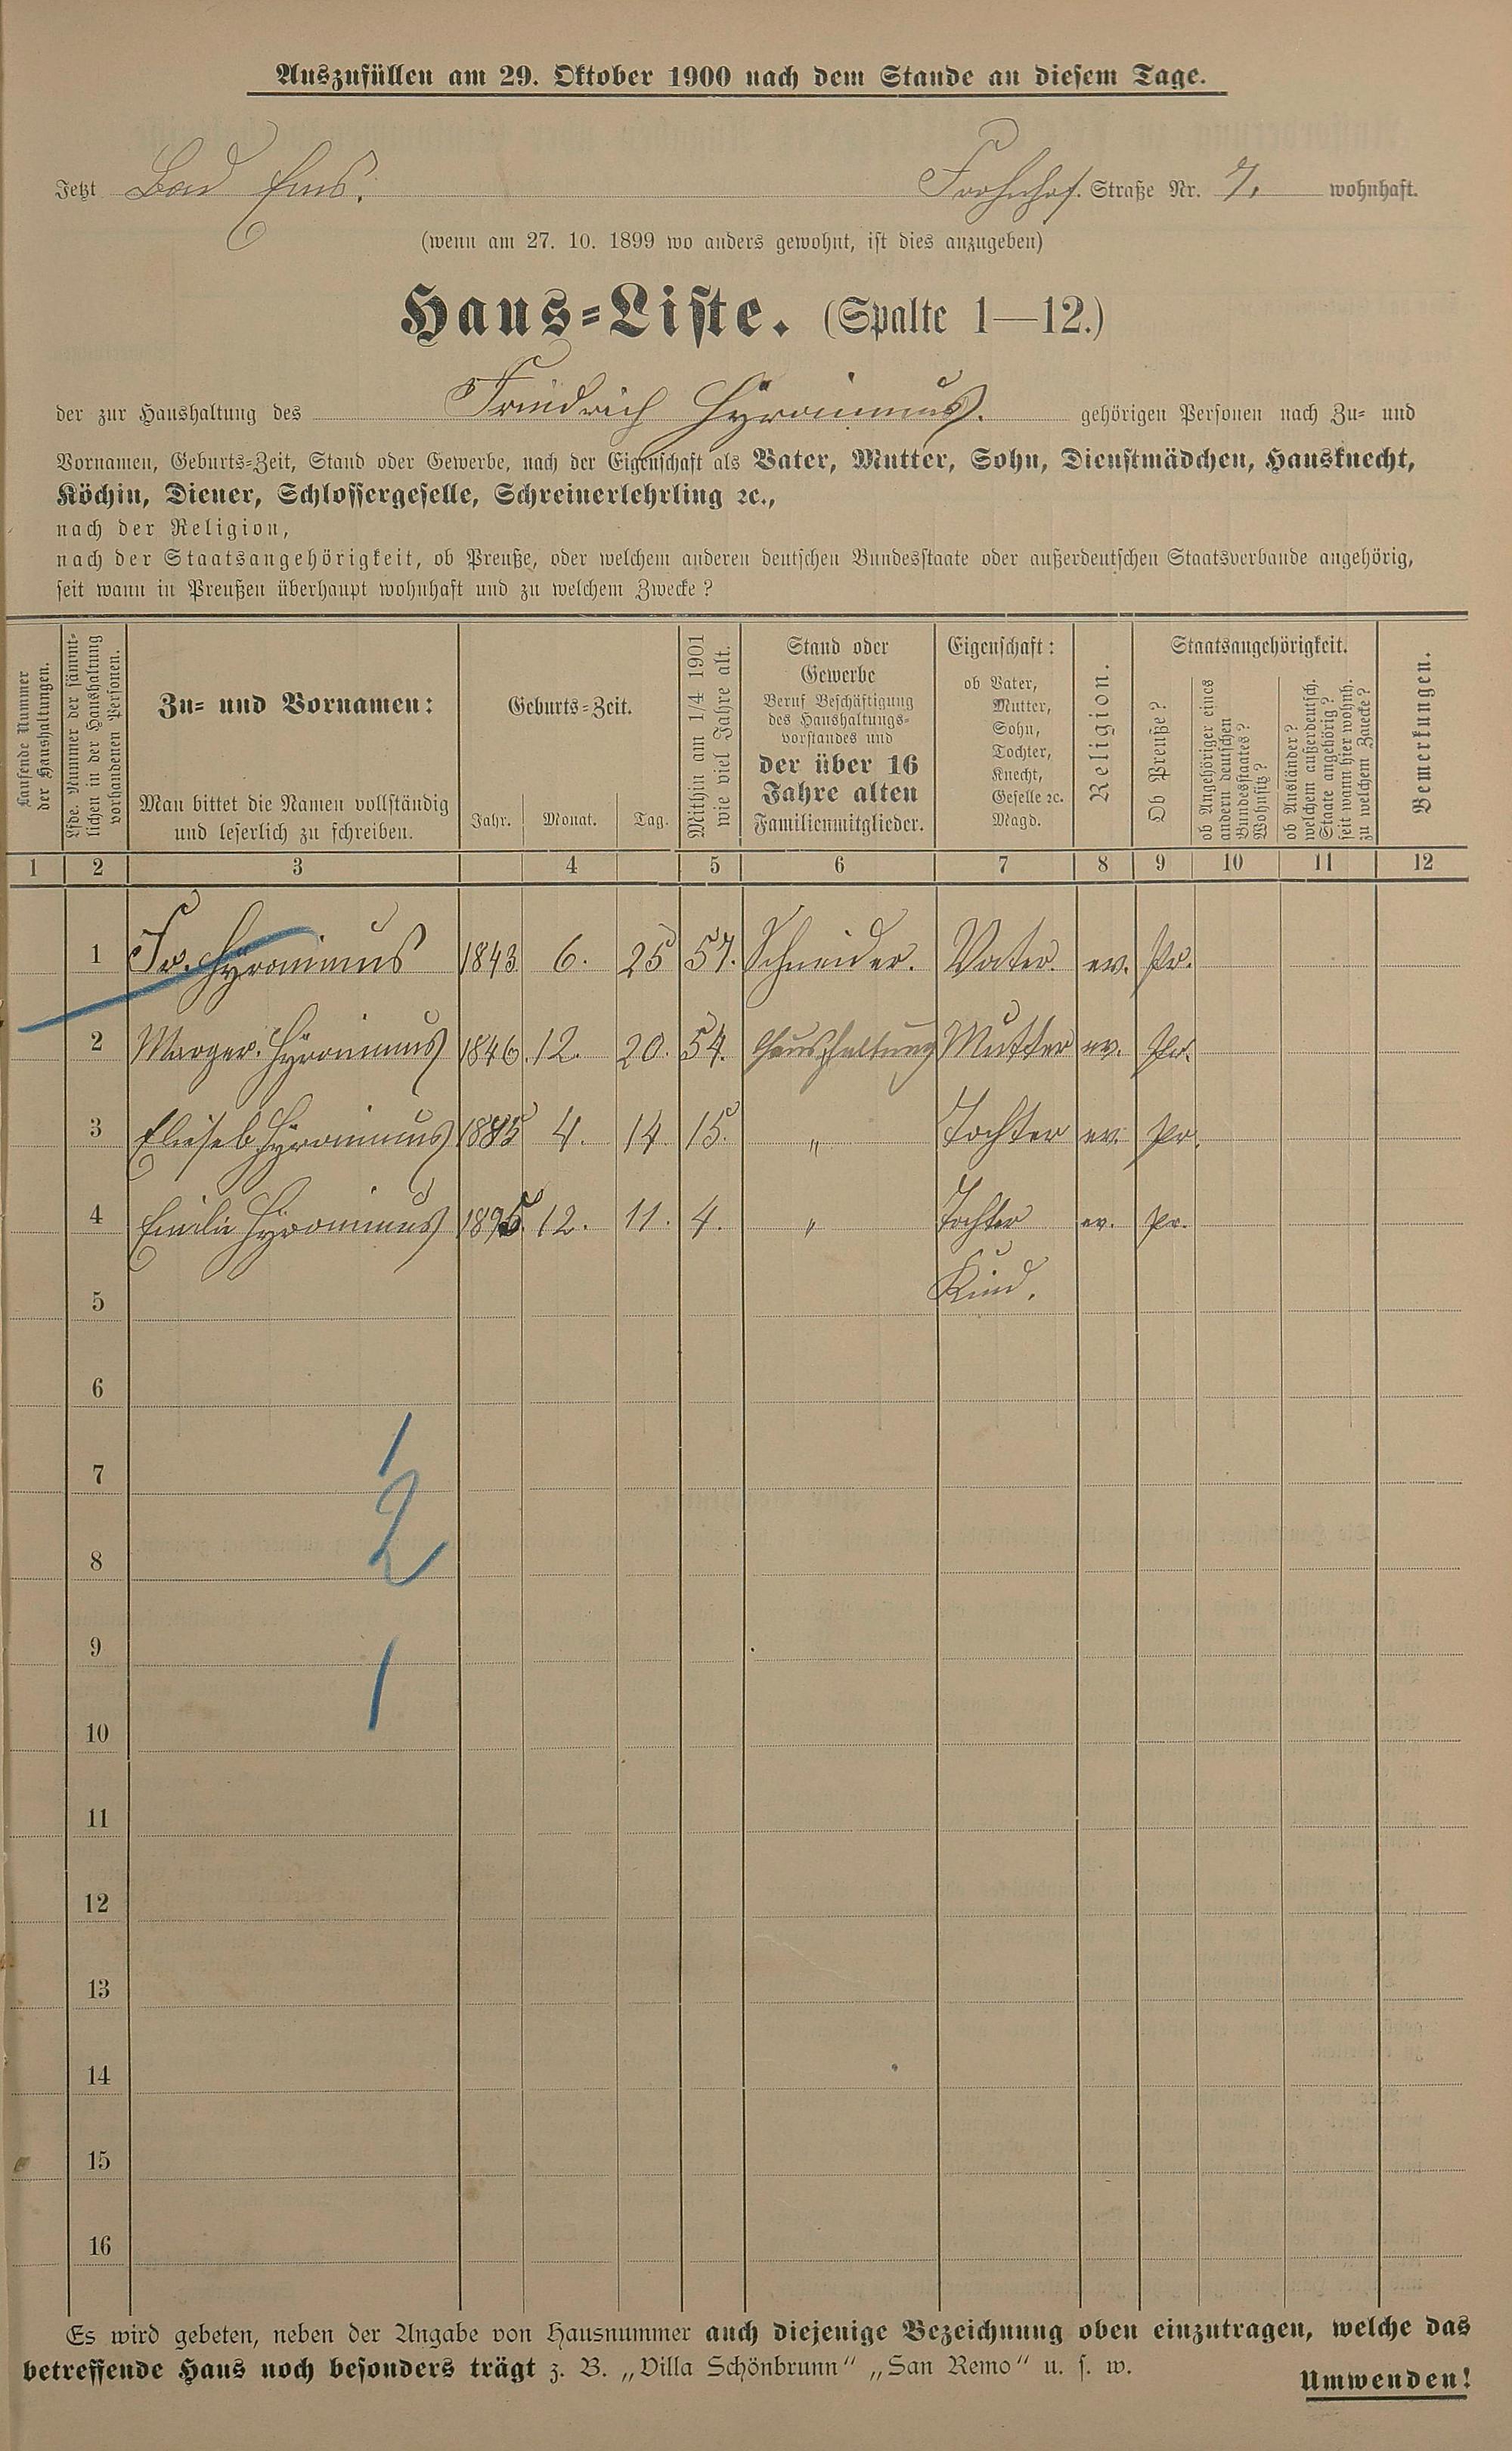 Auszufüllen am 29. Oktober 1900 nach dem Stande an diesem Tage.
Jetzt Bad Ems. Frohnhof. Straße Nr. 7. wohnhaft.
(wenn am 27. 10. 1899 wo anders gewohnt, ist dies anzugeben)
Haus=Liste. (Spalte 1—12.)
der zur Haushaltung des Friedrich Hyronimus. gehörigen Personen nach Zu= und
Vornamen, Geburts=Zeit, Stand oder Gewerbe, nach der Eigenschaft als Vater, Mutter, Sohn, Dienstmädchen, Hausknecht,
Köchin, Diener, Schlossergeselle, Schreinerlehrling ꝛc.,
nach der Religion,
nach der Staatsangehörigkeit, ob Preuße, oder welchem anderen deutschen Bundesstaate oder außerdeutschen Staatsverbande angehörig,
seit wann in Preußen überhaupt wohnhaft und zu welchem Zwecke?
Laufende Nummer
der Haushaltungen.
Lfde. Nummer der sämmt=
lichen in der Haushaltung
vorhandenen Personen.
Zu= und Vornamen:
Man bittet die Namen vollständig
und leserlich zu schreiben.
Geburts=Zeit.
Jahr. Monat. Tag.
Mithin am 1/4 1901
wie viel Jahre alt.
Stand oder
Gewerbe
Beruf Beschäftigung
des Haushaltungs=
vorstandes und
der über 16
Jahre alten
Familienmitglieder.
Eigenschaft:
ob Vater,
Mutter,
Sohn,
Tochter,
Knecht,
Geselle ꝛc.
Magd.
Religion.
Staatsangehörigkeit.
Ob Preuße?
ob Angehöriger eines
andern deutschen
Bundesstaates?
Wohnsitz?
ob Ausländer?
welchem außerdeutsch.
Staate angehörig?
seit wann hier wohnh.
zu welchem Zwecke?
Bemerkungen.
1 2 3 4 5 6 7 8 9 10 11 12
1 Fr. Hyronimus 1843. 6. 25 57. Schneider. Vater. ev. Pr.
2 Margar. Hyronimus 1846. 12. 20. 54. Haushaltung Mutter ev. Pr.
3 Eliseb. Hyronimus 1885 4. 14. 15. „ Tochter ev. Pr.
4 Emilie Hyronimus 1895. 12. 11. 4. „ Tochter ev. Pr.
5 Kind.
6
7
1
8
2
9
10
1
11
12
13
14
15
16
Es wird gebeten, neben der Angabe von Hausnummer auch diejenige Bezeichnung oben einzutragen, welche das
betreffende Haus noch besonders trägt z. B. „Villa Schönbrunn“ „San Remo“ u. s. w.
Umwenden!